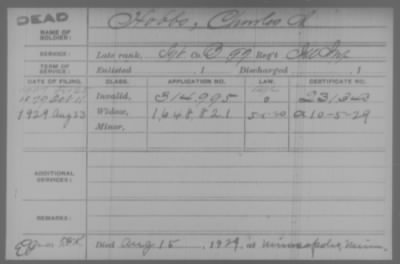 DEAD
NAME OF SOLDIER: Hobbs, Charles A
SERVICE: Late rank, Sgt Co. B 99 Reg't Ill Inf
TERM OF SERVICE: Enlisted , 1 Discharged , 1
DATE OF FILING. CLASS. APPLICATION NO. LAW. CERTIFICATE NO.
Invalid, 314,995
1929 Aug 23 Widow, 1648821 10-5-29
Minor,
ADDITIONAL SERVICES:
REMARKS:
Died Aug 15, 1929, at Minneapolis, Minn.